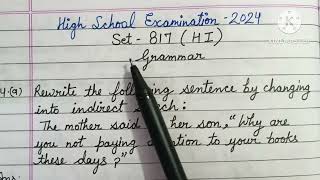 High School Examination - 2024
Set - 817 (HI)
Grammar
4.(a) Rewrite the following sentence by changing
into indirect speech:
The mother said her son, "Why are
you not paying attention to your books
these days?"
Ans:
K